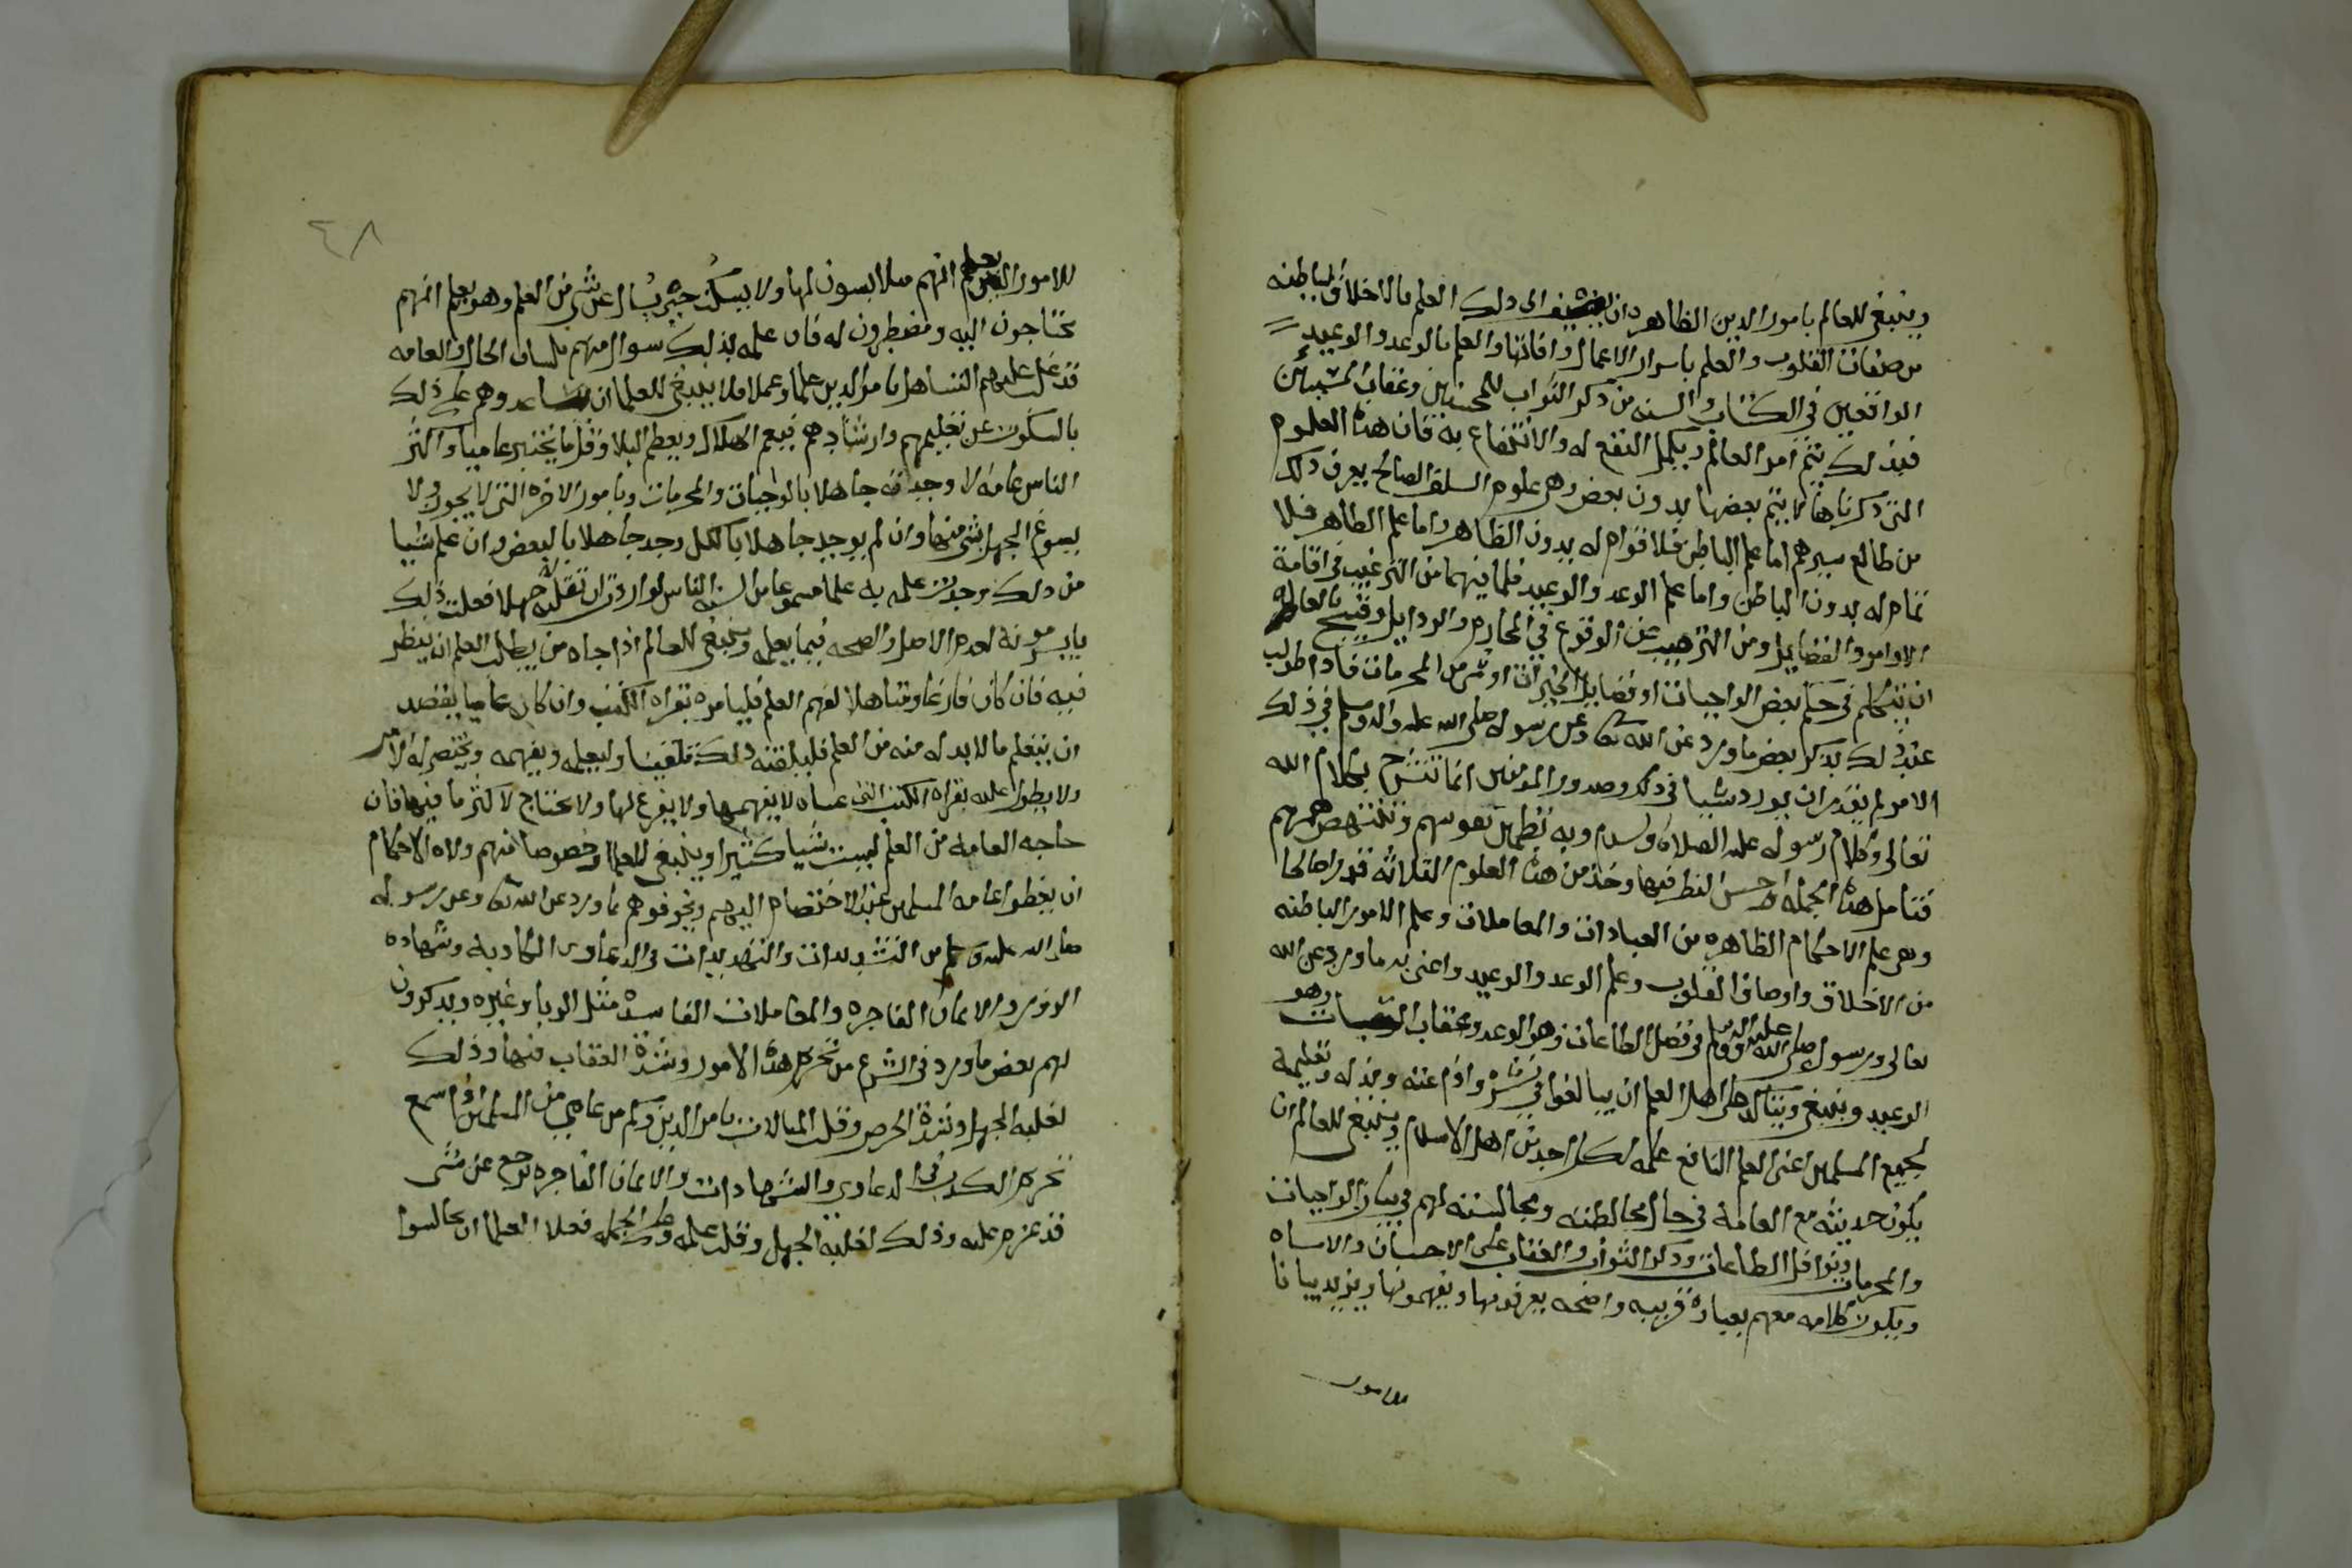 وينبغي للعالم بامور الدين الظاهره ان يضيف الى ذلك العلم بالاخلاق الباطنه
من صفات القلوب والعلم باسرار الاعمال وافاتها والعلم بالوعد والوعيد
الواقعين في الكتاب والسنه من ذكر الثواب للمحسنين وعقاب المسيئين
فبذلك يتم امر العالم ويكمل النفع له والانتفاع به فان هذه العلوم
التي ذكرناها لا يتم بعضها بدون بعض وهي علوم السلف الصالح يعرف ذلك
من طالع سيرهم اما علم الباطن فلا قوام له بدون الظاهر واما علم الظاهر فلا
تمام له بدون الباطن واما علم الوعد والوعيد فلما فيهما من الترغيب في اقامة
الاوامر والفضايل ومن الترهيب عن الوقوع في المحارم والرذايل وقبيح بالعالم
ان يتكلم في حكم بعض الواجبات او فضايل الخيرات او شي من المحرمات فاذا طولب
عند ذلك بذكر بعض ما ورد عن الله تعا وعن رسوله صلى الله عليه واله وسلم في ذلك
الامر لم يقدر ان يورد شيا في ذلك وصدور المومنين انما تنشرح بكلام الله
تعالى وكلام رسوله عليه الصلاة والسلام وبه تطمين نفوسهم وتنتهض هممهم
فتامل هذه الجمله واحسن النظر فيها وخذ من هذه العلوم الثلاثه قدرا صالحا
وهي علم الاحكام الظاهره من العبادات والمعاملات وعلم الامور الباطنه
من الاخلاق واوصاف القلوب وعلم الوعد والوعيد واعني به ما ورد عن الله
تعالى ورسوله صلى الله عليه واله وسلم في فضل الطاعات وهو الوعد وعقاب السيات وهو
الوعيد وينبغي ويتاكد على اهل العلم ان يبالغوا في نشره واذاعته وبذله وتعليمه
لجميع المسلمين اعني العلم النافع علمه لكل احد من اهل الاسلام وينبغي للعالم ان
يكون حديثه مع العامة في حال مخالطته ومجالسته لهم في بيان الواجبات
والمحرمات ونوافل الطاعات وذكر الثواب والعقاب على الاحسان والاساه
ويكون كلامه معهم بعبارة قريبه واضحه يعرفونها ويفهمونها ويزيد بيانا
للامور
٤٨
للامور التي يعلم انهم ملابسون لها ولا يسكت حتى يسال عن شي من العلم وهو يعلم انهم
محتاجون اليه ومضطرون له فان علمه بذلك سوال منهم بلسان الحال والعامه
قد غلب عليهم التساهل بامر الدين علما وعملا فلا ينبغي للعلما ان يساعدوهم على ذلك
بالسكوت عن تعليمهم وارشادهم فيعم الهلاك ويعظم البلا وقل ما تختبر عاميا واكثر
الناس عامه الا وجدته جاهلا بالواجبات والمحرمات وبامور الاخره التي لا يجوز ولا
يسوغ الجهل بشي منها وان لم يوجد جاهلا بالكل وجد جاهلا بالبعض وان علم شيا
من ذلك وجدت علمه به علما مسموعا من السنة الناس لو اردت ان تقلبه له جهلا فعلت ذلك
بايسر مونة لعدم الاصل والصحه فيما يعلمه وينبغي للعالم اذا جاه من يطلب العلم ان ينظر
فيه فان كان فارغا ومتاهلا لفهم العلم فليامره بقراه الكتب وان كان عاميا يقصد
ان يتعلم ما لا بد له منه من العلم فليلقنه ذلك تلقينا وليعلمه ويفهمه ويختصر له الامر
ولا يطول عليه بقراه الكتب التي عساه لا يفهمها ولا يفرغ لها ولا يحتاج لاكثر ما فيها فان
حاجه العامه من العلم ليست شيا كثيرا وينبغي للعلما وخصوصا منهم ولاه الاحكام
ان يعظوا عامه المسلمين عند الاختصام اليهم ويخوفوهم بما ورد عن الله تعا وعن رسوله
صلى الله عليه وسلم من التشديدات والتهديدات في الدعاوى الكاذبه وشهاده
الزور والايمان الفاجره والمعاملات الفاسده مثل الربا وغيره ويذكرون
لهم بعض ما ورد في الشرع من تحريم هذه الامور وشدة العقاب فيها وذلك
لغلبه الجهل وشدة الحرص وقلت المبالات بامر الدين وكم من عامي من المسلمين اذا سمع
تحريم الكذب في الدعاوي والشهادات والايمان الفاجره رجع عن شي
قد عزم عليه وذلك لغلبة الجهل وقلت علمه وعلى الجمله فعلى العلما ان يجالسوا